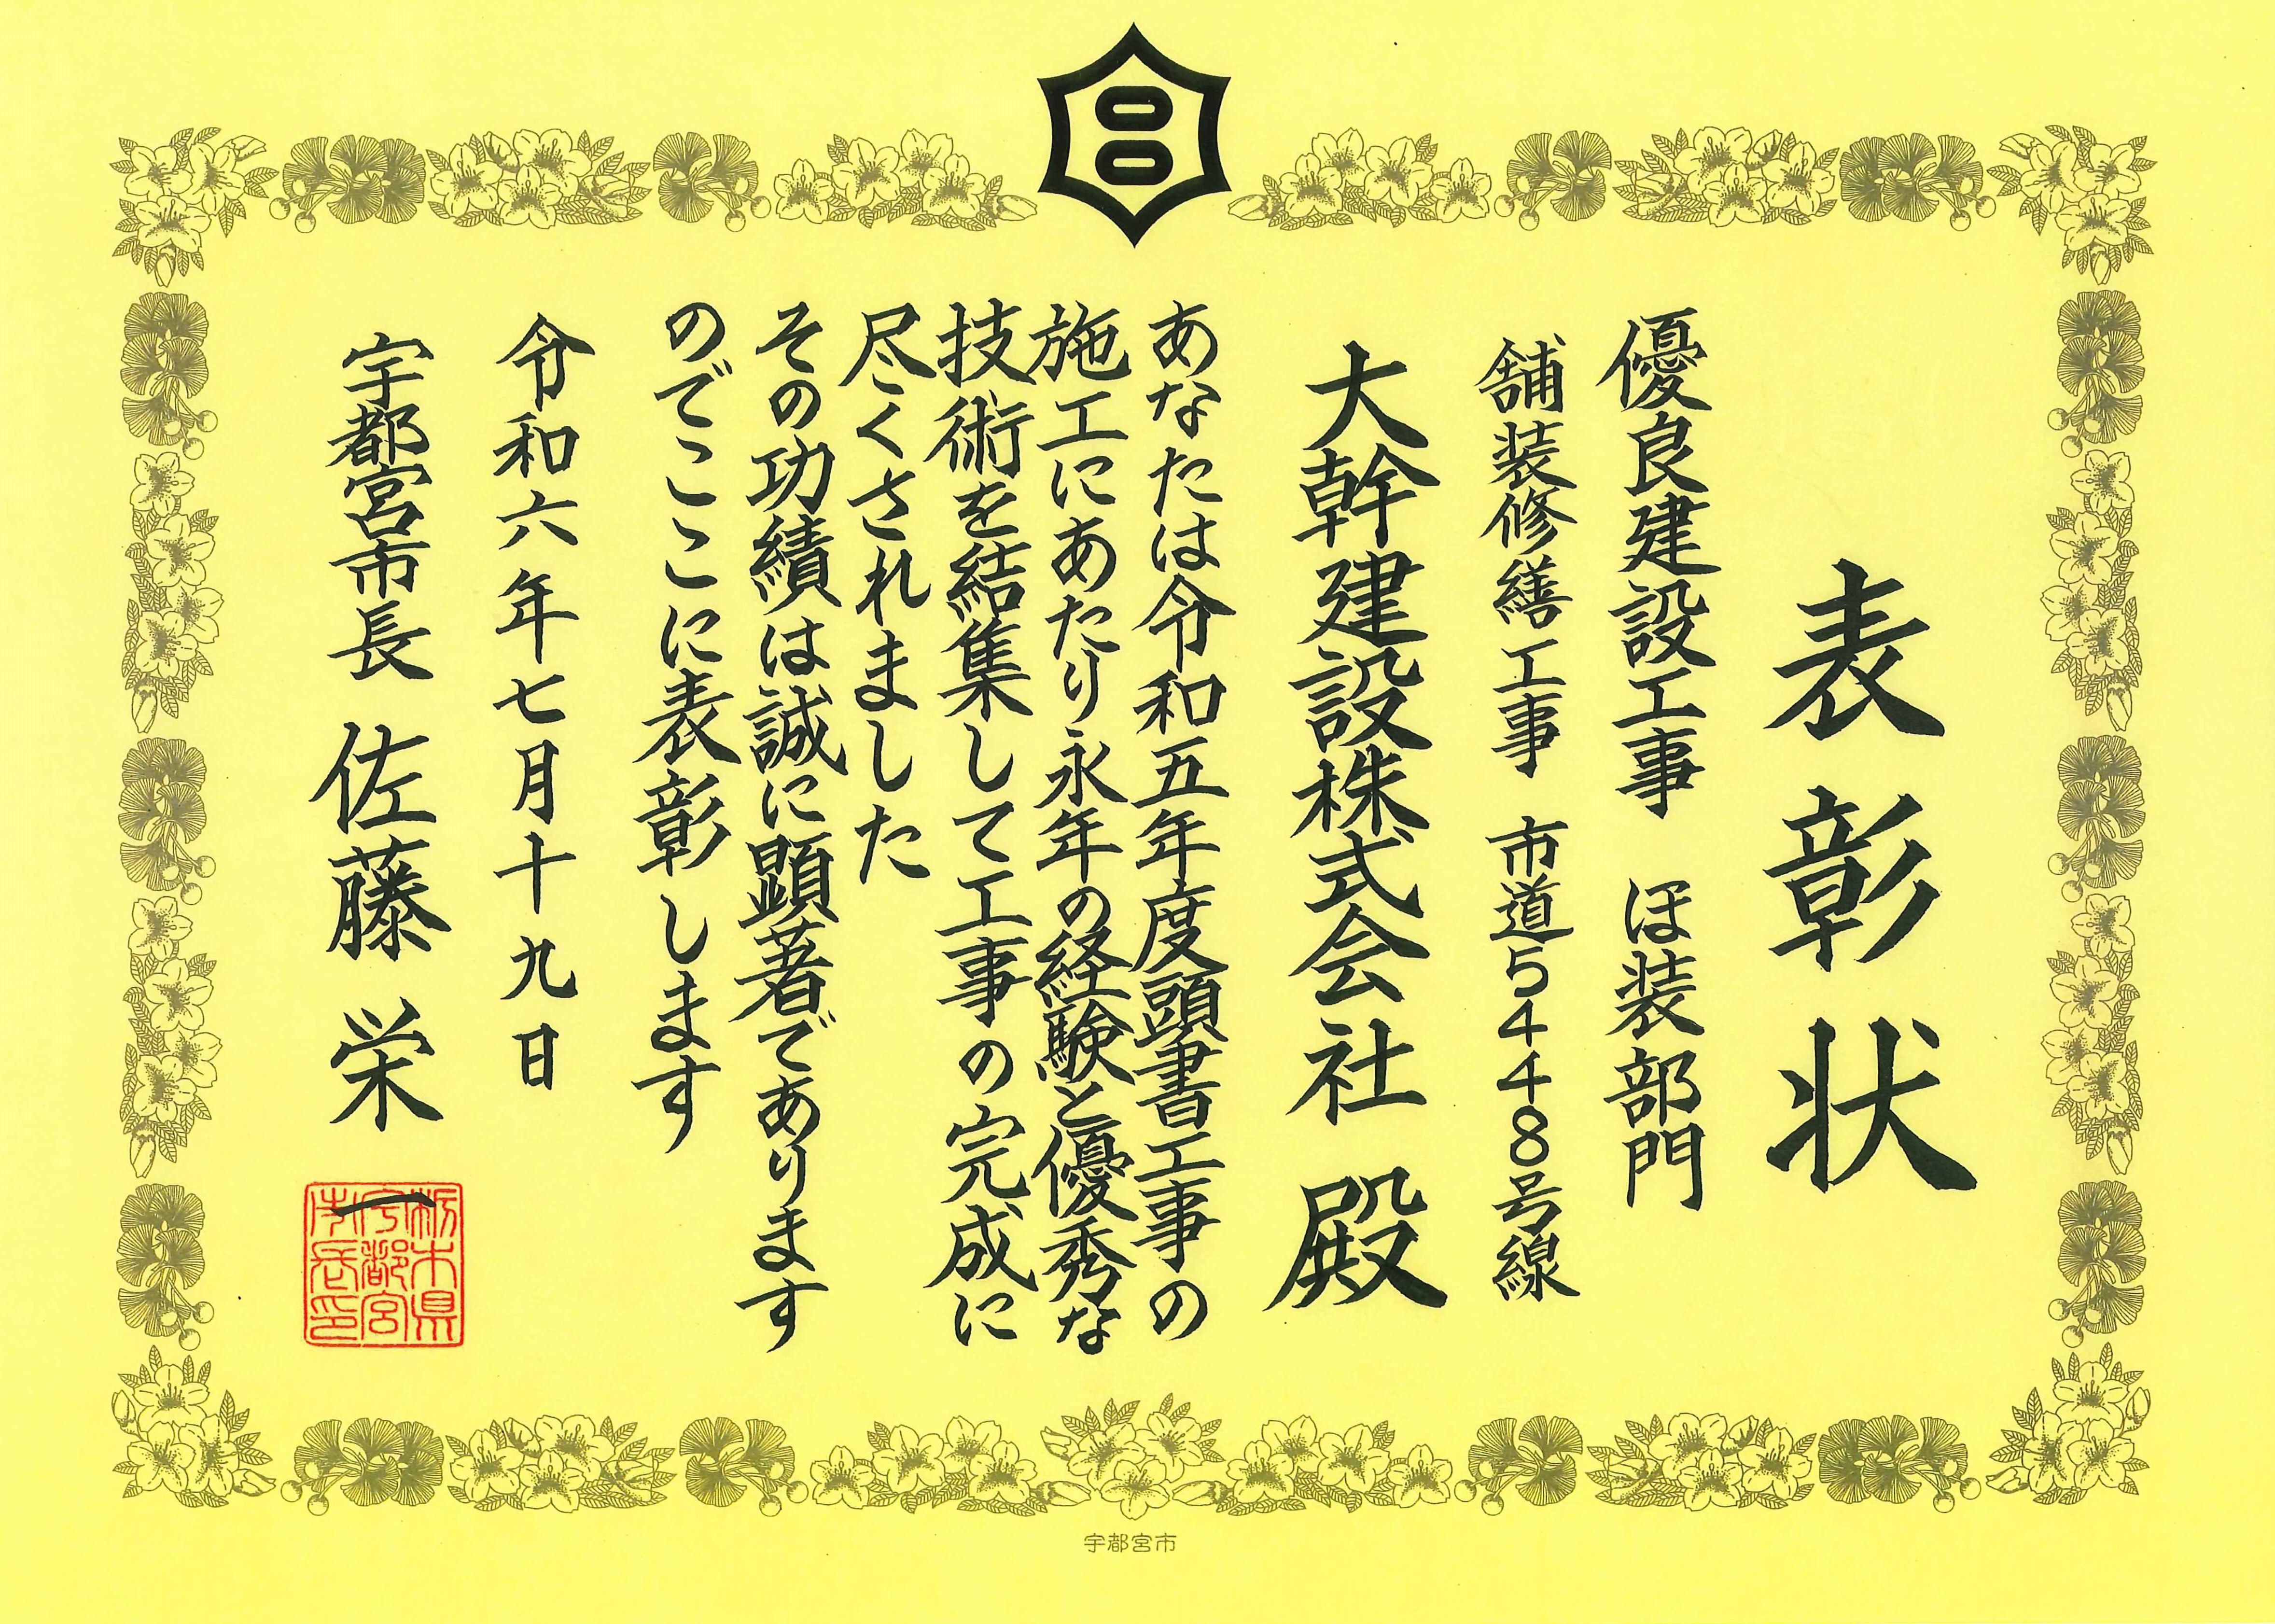 表彰状
優良建設工事　ほ装部門
舗装修繕工事　市道５４４８号線
大幹建設株式会社　殿
あなたは令和五年度頭書工事の
施工にあたり永年の経験と優秀な
技術を結集して工事の完成に
尽くされました
その功績は誠に顕著であります
のでここに表彰します
令和六年七月十九日
宇都宮市長　佐藤栄一
栃木県
宇都宮
市長印
宇都宮市